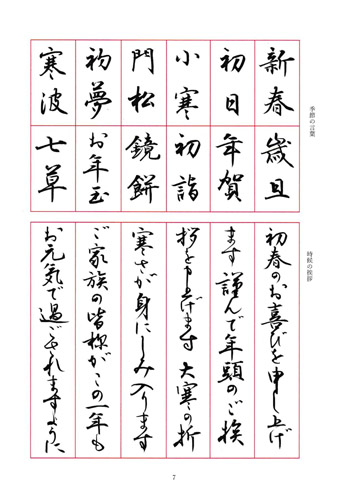 季節の言葉
新春 歳旦
初日 年賀
小寒 初詣
門松 鏡餅
初夢 お年玉
寒波 七草
時候の挨拶
初春のお喜びを申し上げ
ます 謹んで年頭のご挨
拶を申し上げます 大寒の折
寒さが身にしみ入ります
ご家族の皆様がこの一年も
お元気で過ごされますように
7